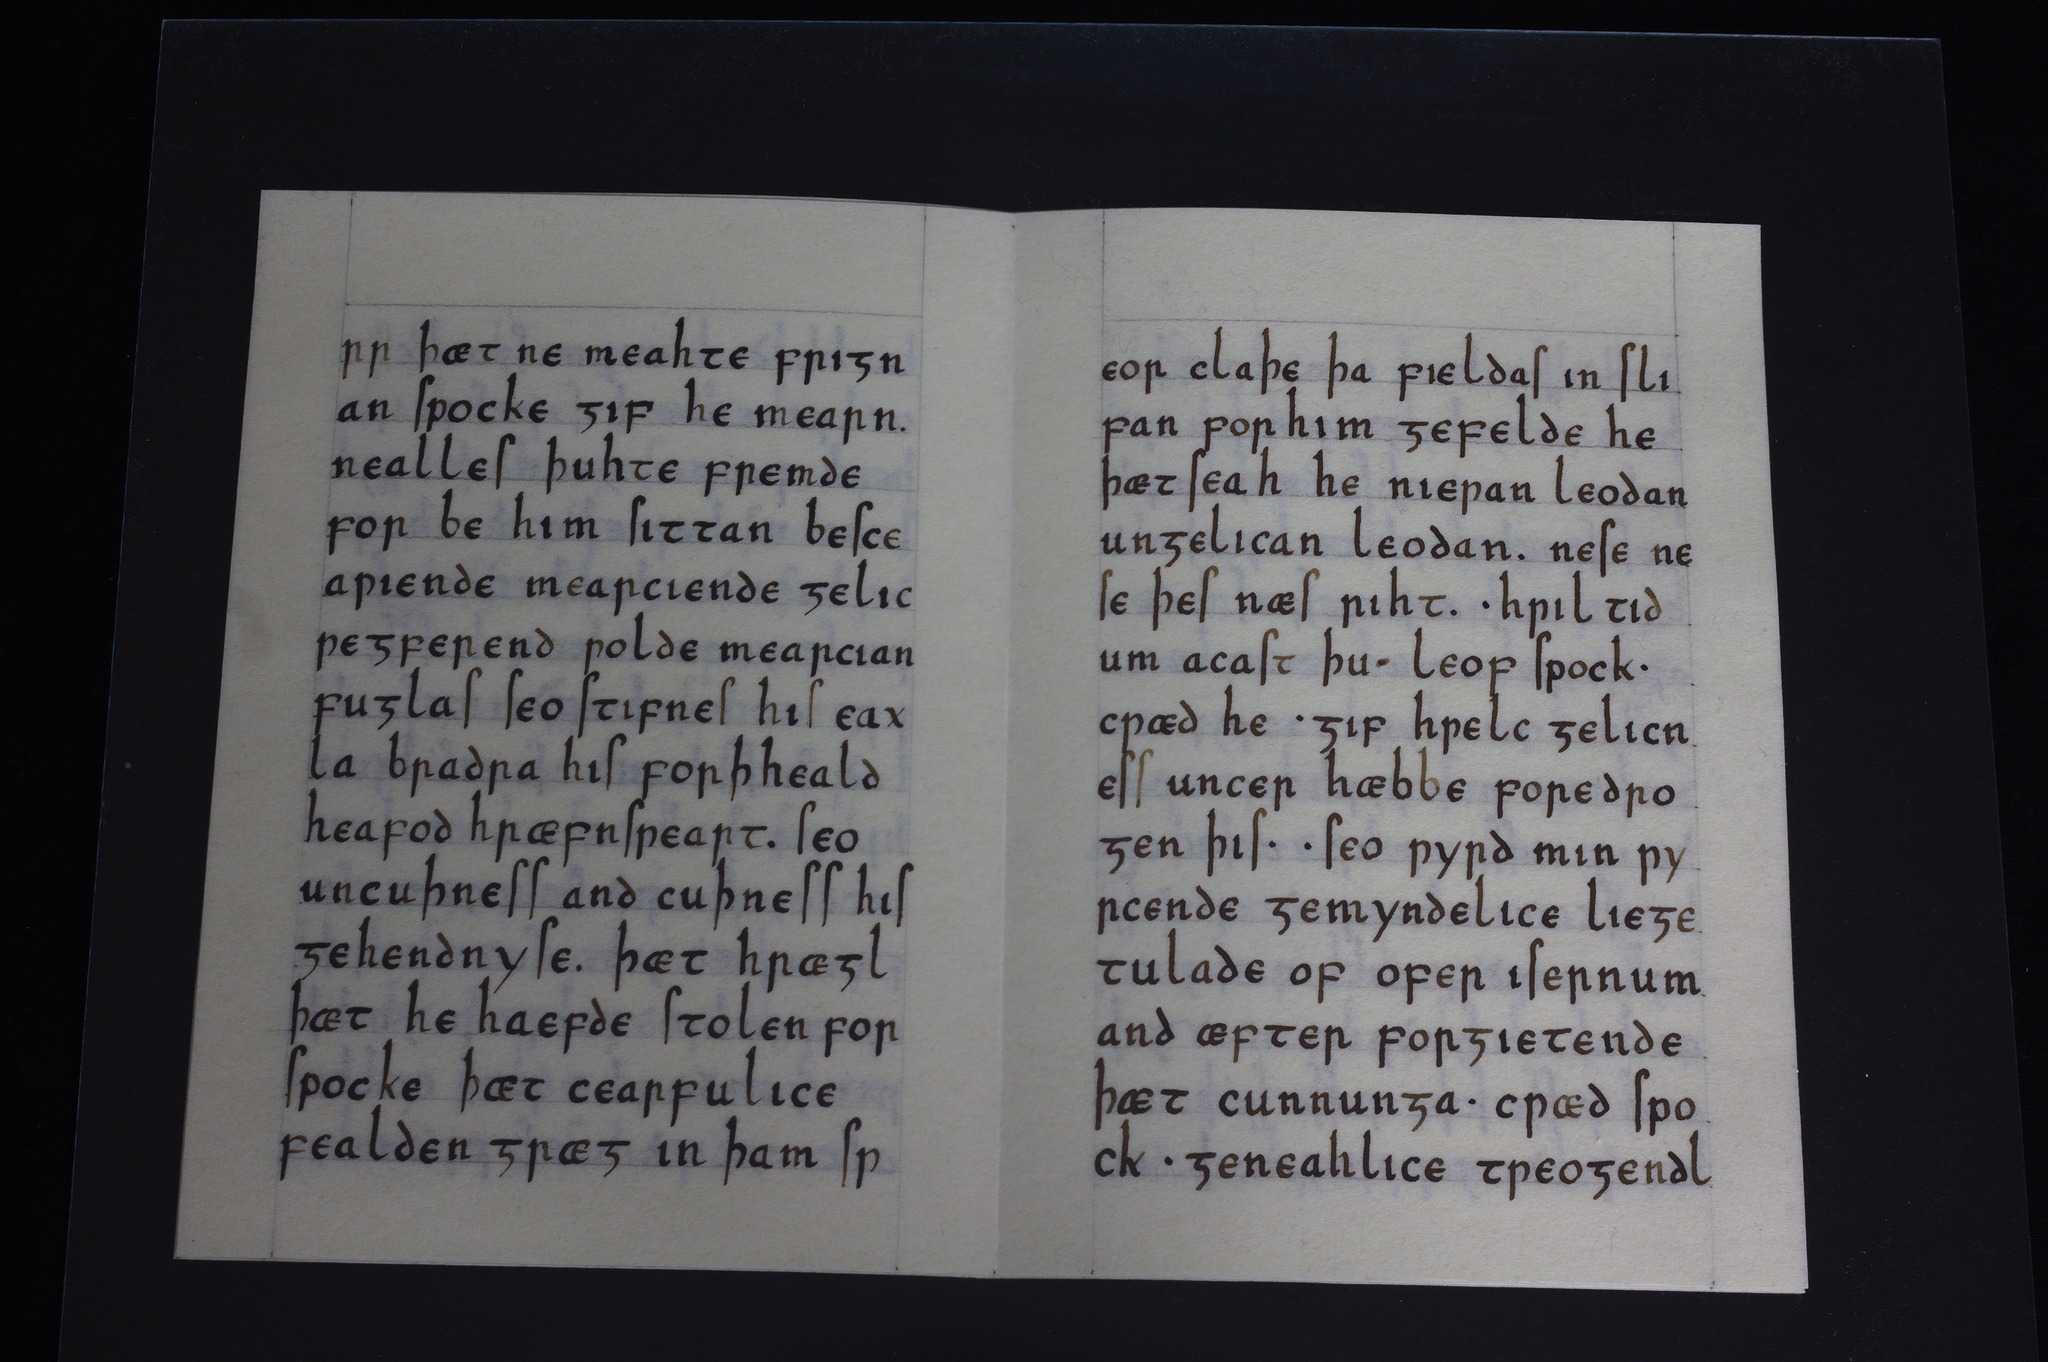 rr þæt ne meahte frign
an ſpocke gif he mearn.
nealleſ þuhte fremde
for be him ſittan beſce
aƿiende mearciende gelic
ƿegferend ƿolde mearcian
fuglaſ ſeo ſtifneſ hiſ eax
la bradra hiſ forþheald
heafod hræfnſƿeart. ſeo
uncuþneſſ and cuþneſſ hiſ
gehendnyſe. þæt hrægl
þæt he haefde ſtolen for
ſpocke þæt cearfulice
fealden græg in þam ſƿ
eor claþe þa fieldaſ in ſli
fan for him gefelde he
þæt ſeah he nieƿan leodan
ungelican leodan. neſe ne
ſe þeſ næſ riht. ·hƿil tid
um acaſt þu- leof ſpock·
cƿæd he ·gif hƿelc gelicn
eſſ uncer hæbbe foredro
gen þiſ· ·ſeo ƿyrd min ƿy
rcende gemyndelice liege
tulade of ofer iſernum
and æfter forgietende
þæt cunnunga· cƿæd ſpo
ck ·geneahlice tƿeogendl